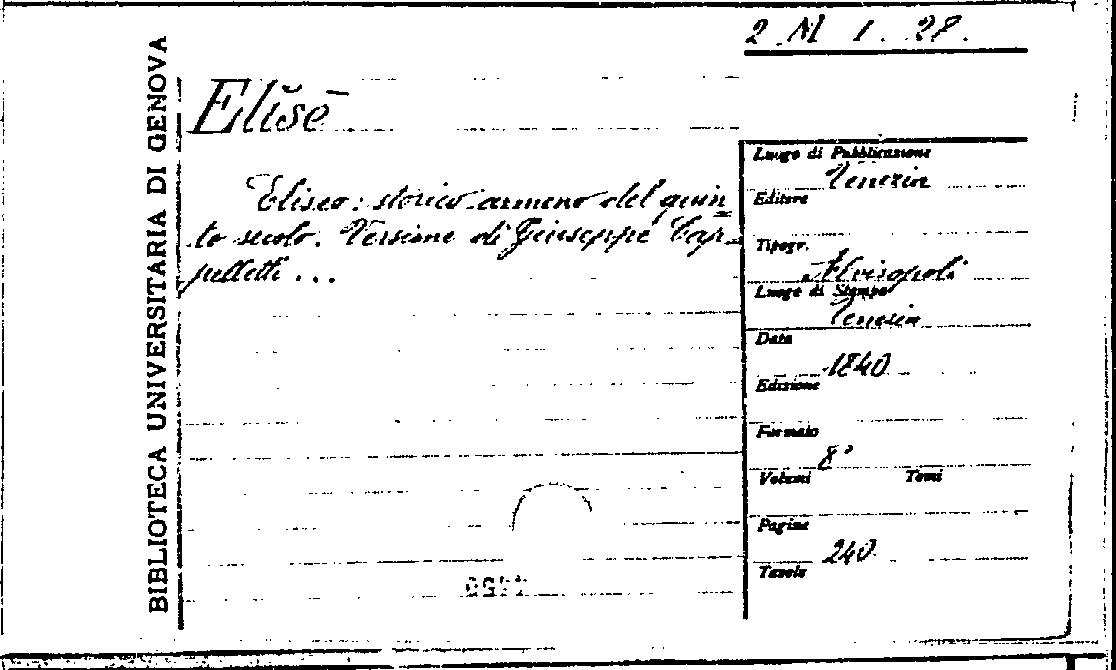 2 M 1. 28.
BIBLIOTECA UNIVERSITARIA DI GENOVA
Elišē
Eliseo: storico armeno del quin
to secolo. Versione di Giuseppe Cap-
pelletti...
Luogo di Pubblicazione
Venezia
Editore
Tipogr.
Alvisopoli
Luogo di Stampa
Venezia
Data
1840
Edizione
Formato
8°
Volumi Tomi
Pagine
240
Tavole